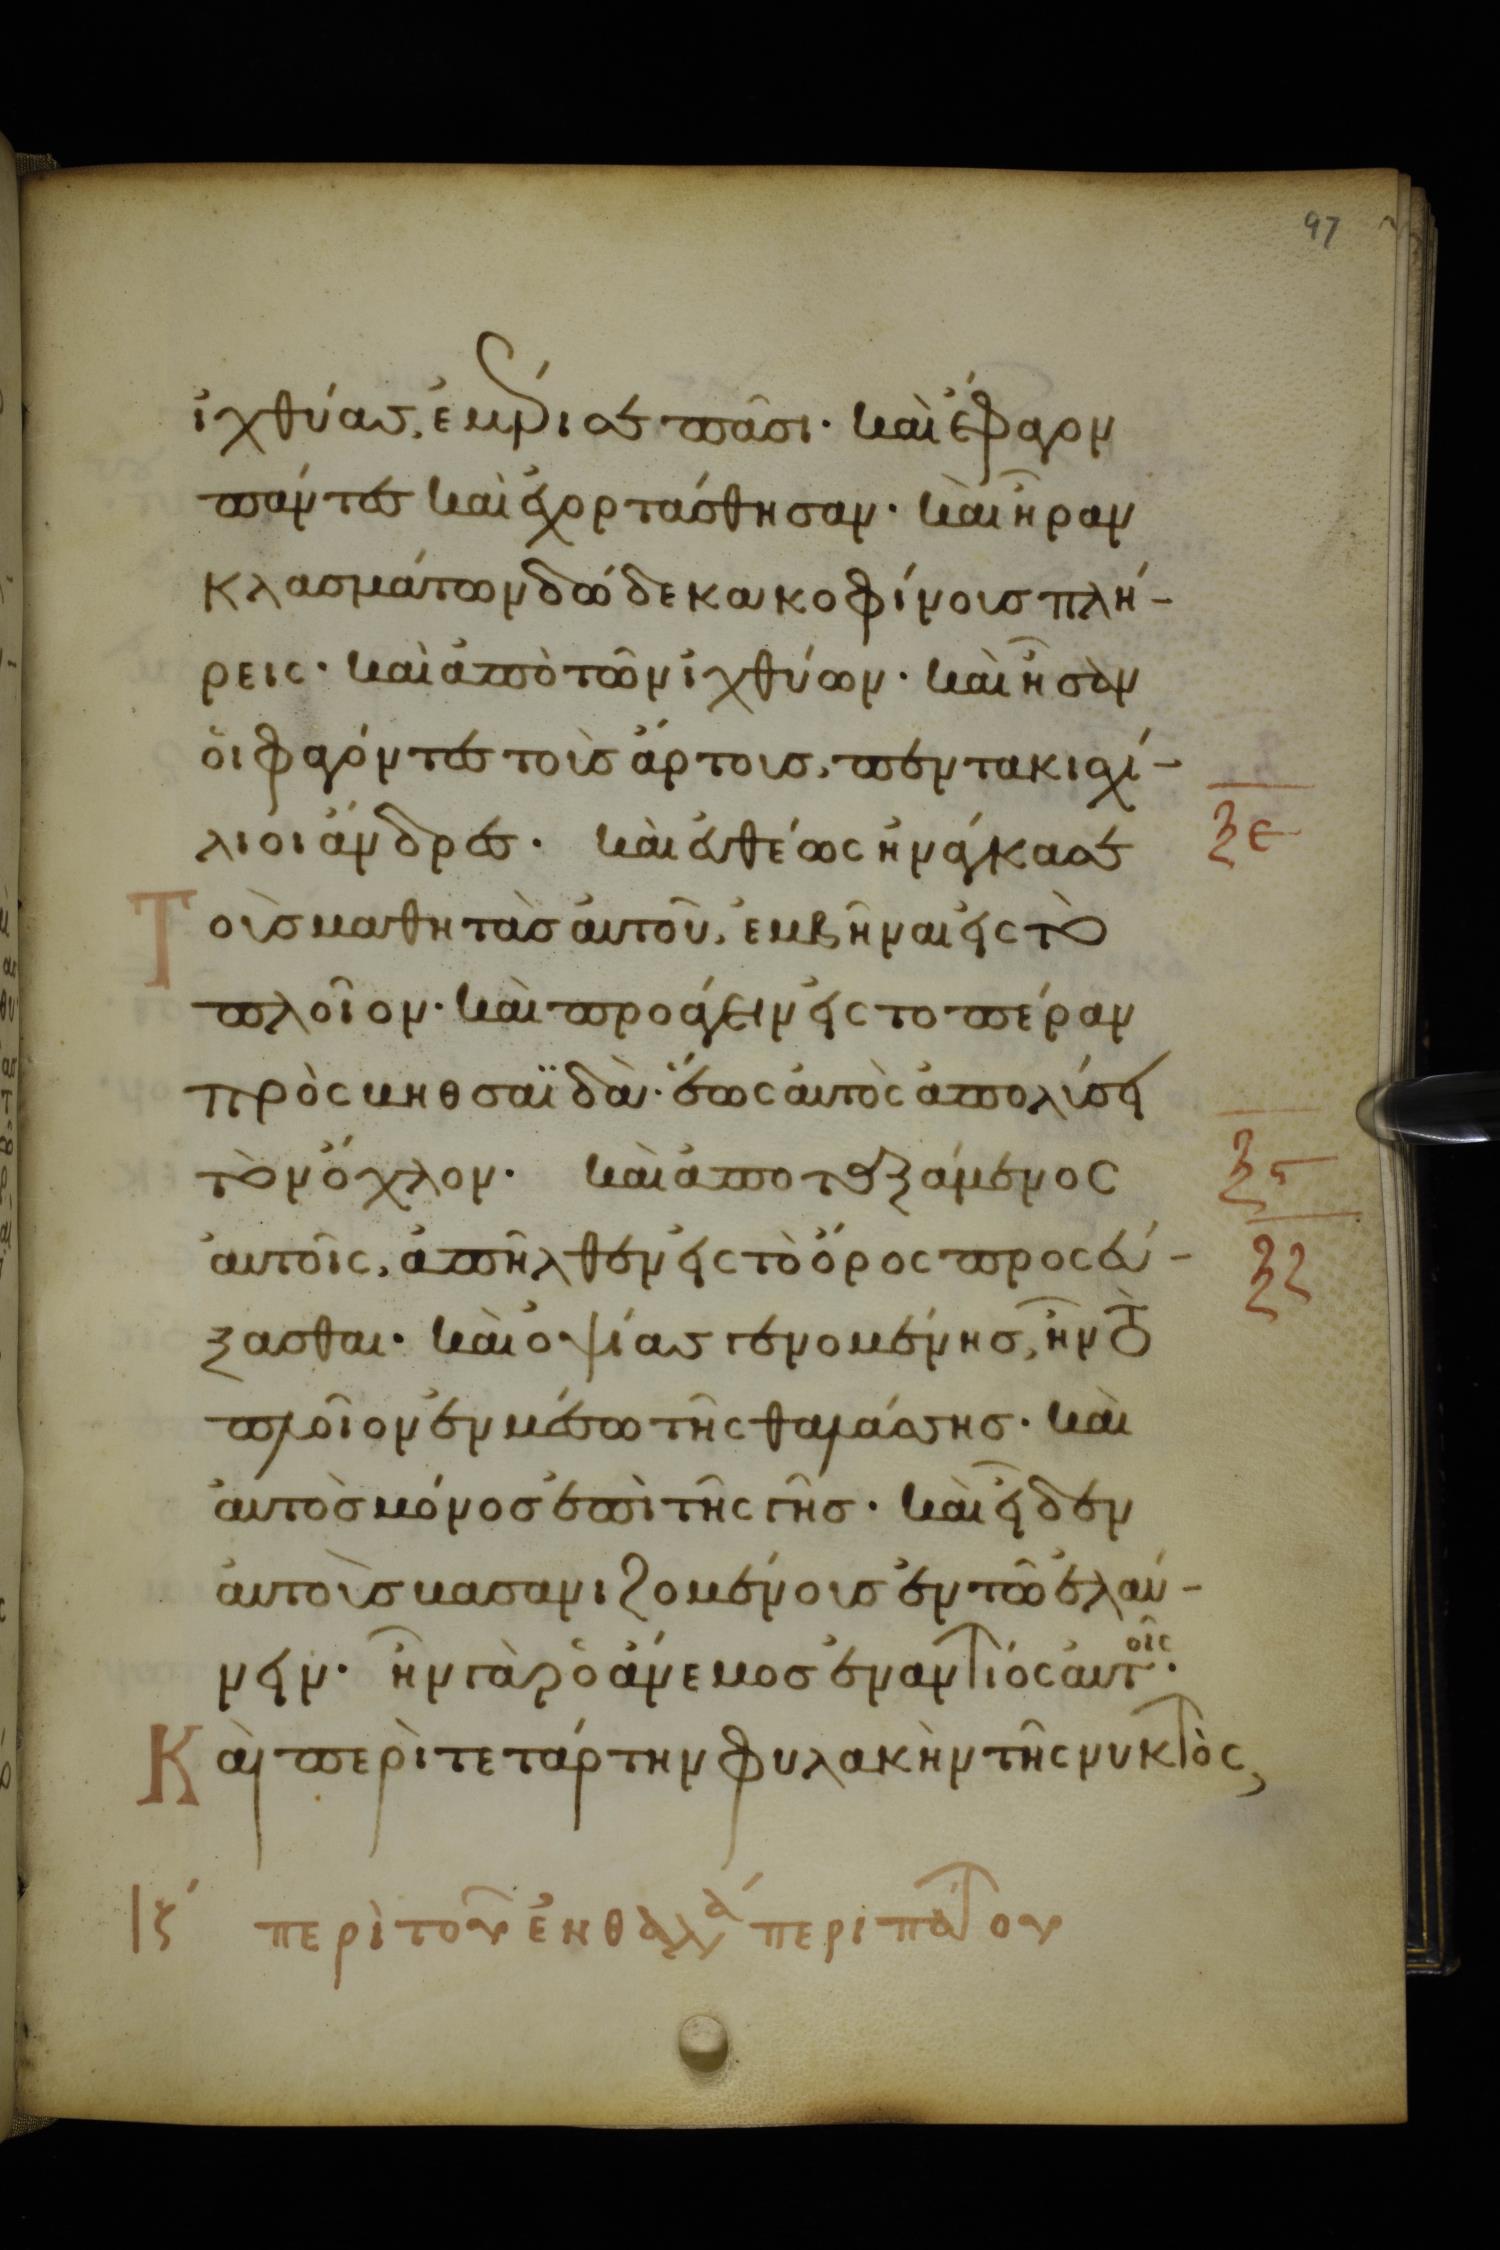 97
ἰχθύας, ἐμέρισε πᾶσι· καὶ ἔφαγον
πάντες καὶ ἐχορτάσθησαν· καὶ ἦραν
κλασμάτων δώδεκα κοφίνους πλή-
ρεις· καὶ ἀπὸ τῶν ἰχθύων· καὶ ἦσαν
οἱ φαγόντες τοὺς ἄρτους, πεντακισχί-
λιοι ἄνδρες· καὶ εὐθέως ἠνάγκασε
ξε
Τοὺς μαθητὰς αὐτοῦ, ἐμβῆναι εἰς τὸ
πλοῖον· καὶ προάγειν εἰς το πέραν
πρὸς βηθσαϊδὰν· ἕως αὐτὸς ἀπολύσει
τὸν ὄχλον· καὶ ἀποταξάμενος
ξς
αὐτοῖς, ἀπῆλθεν εἰς τὸ ὄρος προσεύ-
ξζ
ξασθαι· καὶ ὀψίας γενομένης, ἦν τὸ
πλοῖον ἐν μέσω τῆς θαλάσσης· καὶ
αὐτὸς μόνος ἐπὶ τῆς γῆς· καὶ εἶδεν
αὐτοὺς βασανιζομένους ἐν τῶ ἐλαύ-
νειν· ἦν γὰρ ὁ ἄνεμος ἐναντίος αὐτοῖς·
Καὶ περὶ τετάρτην φυλακὴν τῆς νυκτὸς,
ιζ΄ περὶ τοῦ ἐν θαλά περιπάτου